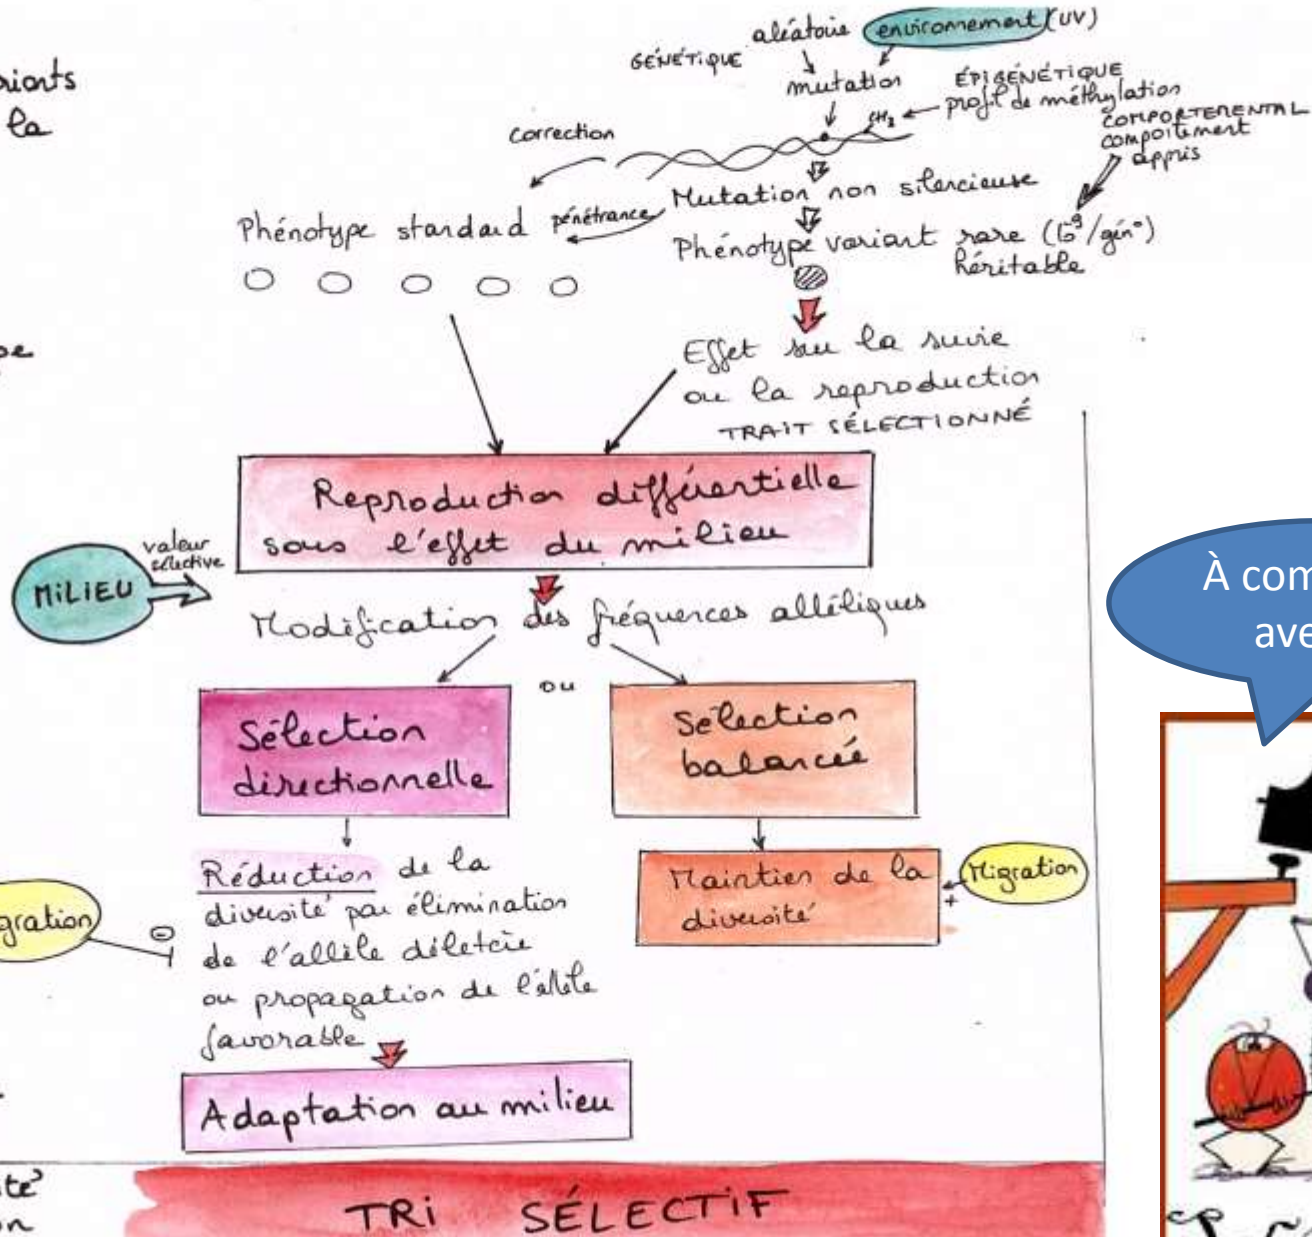 aléatoire environnement (UV)
GÉNÉTIQUE
mutation
ÉPIGÉNÉTIQUE
profil de méthylation
CH3
COMPORTEMENTAL
comportement
appris
riants
la
correction
Mutation non silencieuse
Phénotype standard
pénétrance
Phénotype variant rare
héritable
pe
Effet sur la survie
ou la reproduction
TRAIT SÉLECTIONNÉ
Reproduction différentielle
sous l'effet du milieu
MILIEU
valeur
sélective
Modification des fréquences alléliques
ou
Sélection
directionnelle
Sélection
balancée
Réduction de la
diversité par élimination
de l'allèle délétère
ou propagation de l'allèle
favorable
gration
Maintien de la
diversité
Migration
+
Adaptation au milieu
TRI SÉLECTIF
À com
ave